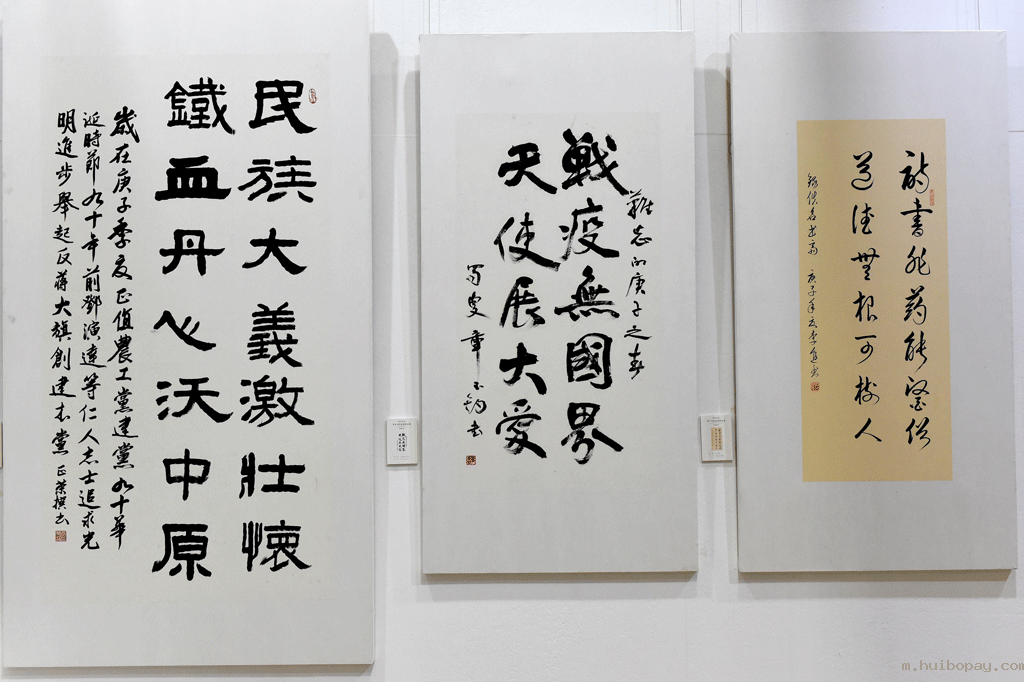 民族大義激壯懷
鐵血丹心沃中原
歲在庚子季夏正值農工黨建黨九十華
诞時節九十年前鄧演達等仁人志士追求光
明進步舉起反蔣大旗創建本黨 正榮撰书
戰疫無國界
天使展大愛
難忘的庚子之春
蜀叟章玉钧书
詩書非药能醫俗
道德無根可樹人
錄佚名 庚子年夏
m.huibopay.com